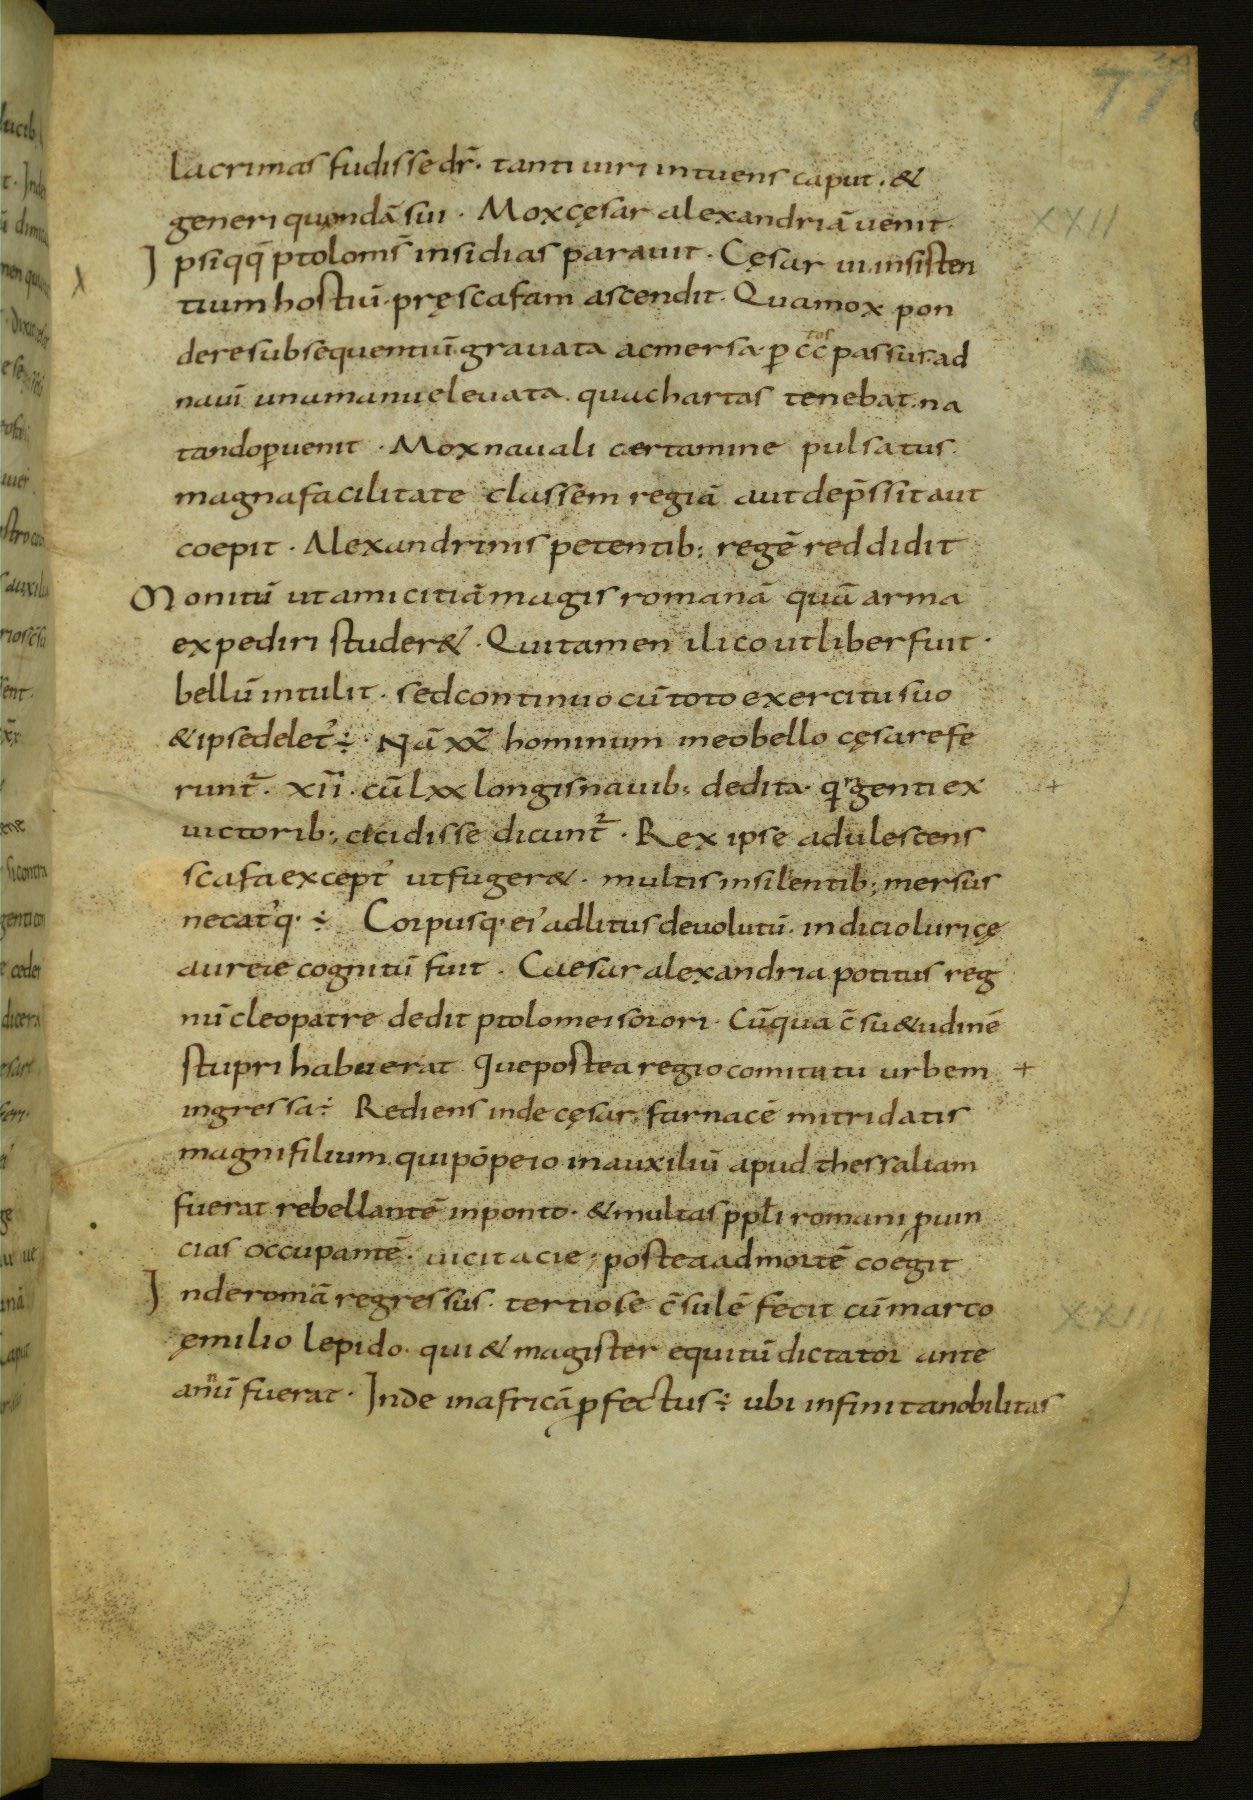 77
lacrimas fudisse dr̄. tanti uiri intuens caput. &
generi quondā sui. Mox cęsar alexandriā uenit.
XXII
Ipsi qq̄ ptolom̄s insidias parauit. Cęsar ui insisten
tium hostiū. pręscafam ascendit. Qua mox pon
dere subsequentiū grauata ac mersa. ꝑ c̄c̄tos passus. ad
nauī una manu eleuata. qua chartas tenebat. na
tando ꝑuenit. Mox nauali certamine pulsatus.
magna facilitate classem regiā aut dep̄ssit aut
coepit. Alexandrinis petentib; regē reddidit
Monitū ut amicitiā magis romanā quā arma
expediri studer&. Qui tamen ilico ut liber fuit.
bellū intulit. sed continuo cū toto exercitu suo
& ipse delet᾽ ÷. Nā xx̄ hominum in eo bello cęsa refe
runt̄. xīī. cū lxx longis nauib; dedita. qingenti ex
uictorib; cecidisse dicunt̄. Rex ipse adulescens
scafa except᾽ ut fuger&. multis insilentib; mersus
necat᾽q· ÷ Corpusq· ei᾽ ad litus deuolutū. indicio luricę
aureie cognitū fuit. Caesar alexandria potitus reg
nū cleopatre dedit ptolomei sorori. Cū qua c̄su&udinē
stupri habuerat Que postea regio comitatu urbem +
ingressa ÷ Rediens inde cęsar. farnacē mitridatis
magni filium. qui pōpeio in auxiliū apud thessaliam
fuerat rebellantē in ponto. & multas ppłi romani ꝓuin
cias occupantē. uicit acie; postea ad mortē coegit
Inde romā regressus. tertio se c̄sulē fecit cū marco
XXIII
ęmilio lepido. qui & magister equitū dictatori ante
annū fuerat. Inde in africā ꝓfectus ÷ ubi infinita nobilitas